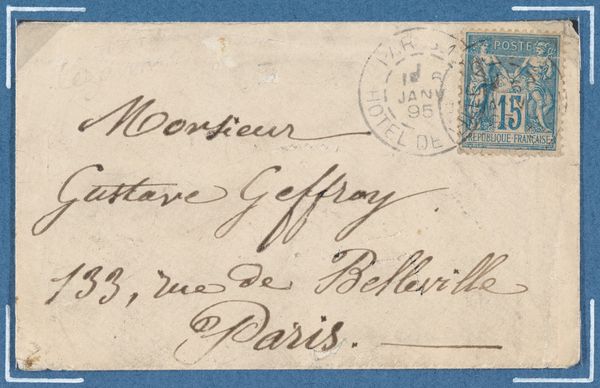 PARIS
JANV
95
HOTEL DE
POSTE
15
REPUBLIQUE FRANÇAISE
Monsieur
Gustave Geffroy
133, rue de Belleville
Paris.